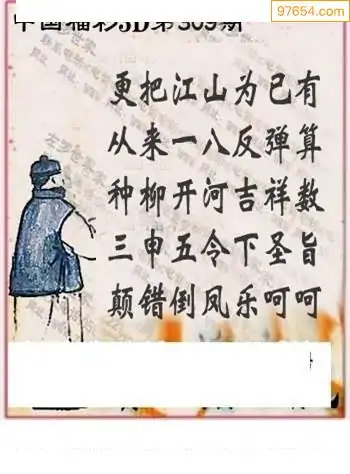 97654.com
中国福彩3D第309期
更把江山为已有
从来一八反弹算
种柳开河吉祥数
三申五令下圣旨
颠错倒凤乐呵呵